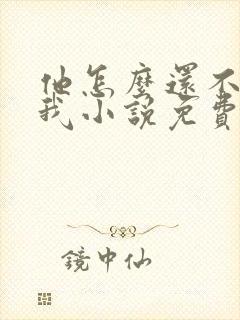 他怎麼還不
我小說免費
鏡中仙